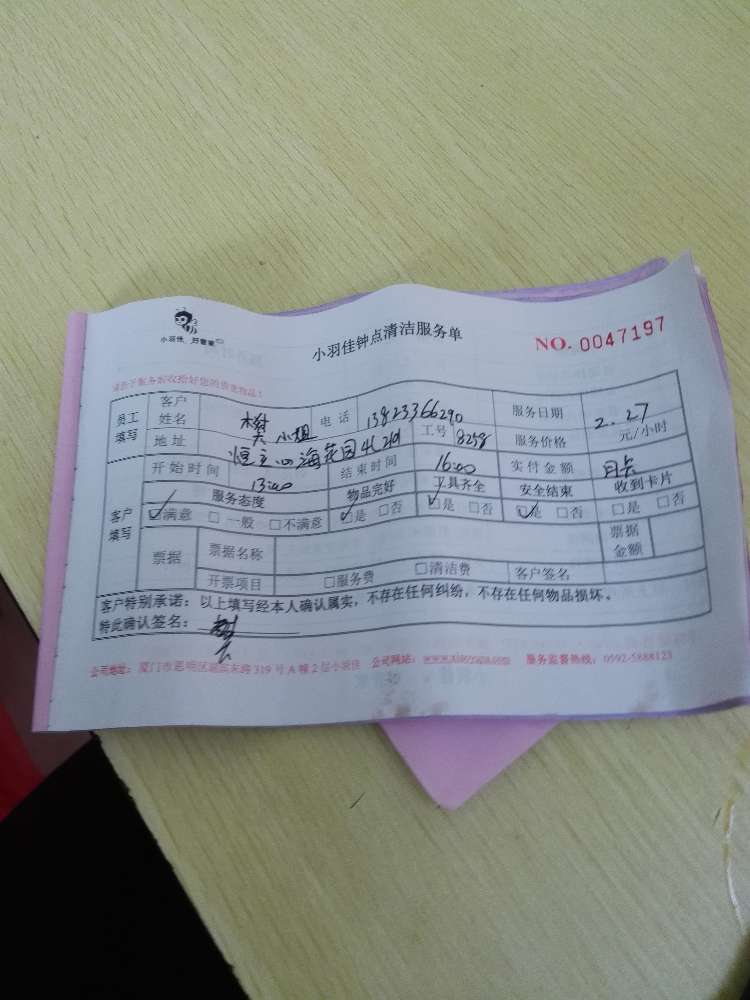 小羽佳 好管家
小羽佳钟点清洁服务单
NO. 0047197
员工填写
客户姓名 小姐 电话 13823366290 服务日期 2.27
地址 工号 8258 服务价格 元/小时
开始时间 13:00 结束时间 16:00 实付金额 月卡
客户填写
服务态度 物品完好 工具齐全 安全结束 收到卡片
☑满意 □一般 □不满意 ☑是 □否 ☑是 □否 ☑是 □否 □是 □否
票据 票据名称 票据金额
开票项目 □服务费 □清洁费 客户签名
客户特别承诺：以上填写经本人确认属实，不存在任何纠纷，不存在任何物品损坏。
特此确认签名：
公司地址：厦门市思明区湖滨东路319号A幢2层小羽佳 公司网站：www.xiaoyujia.com 服务监督热线：0592-5888123